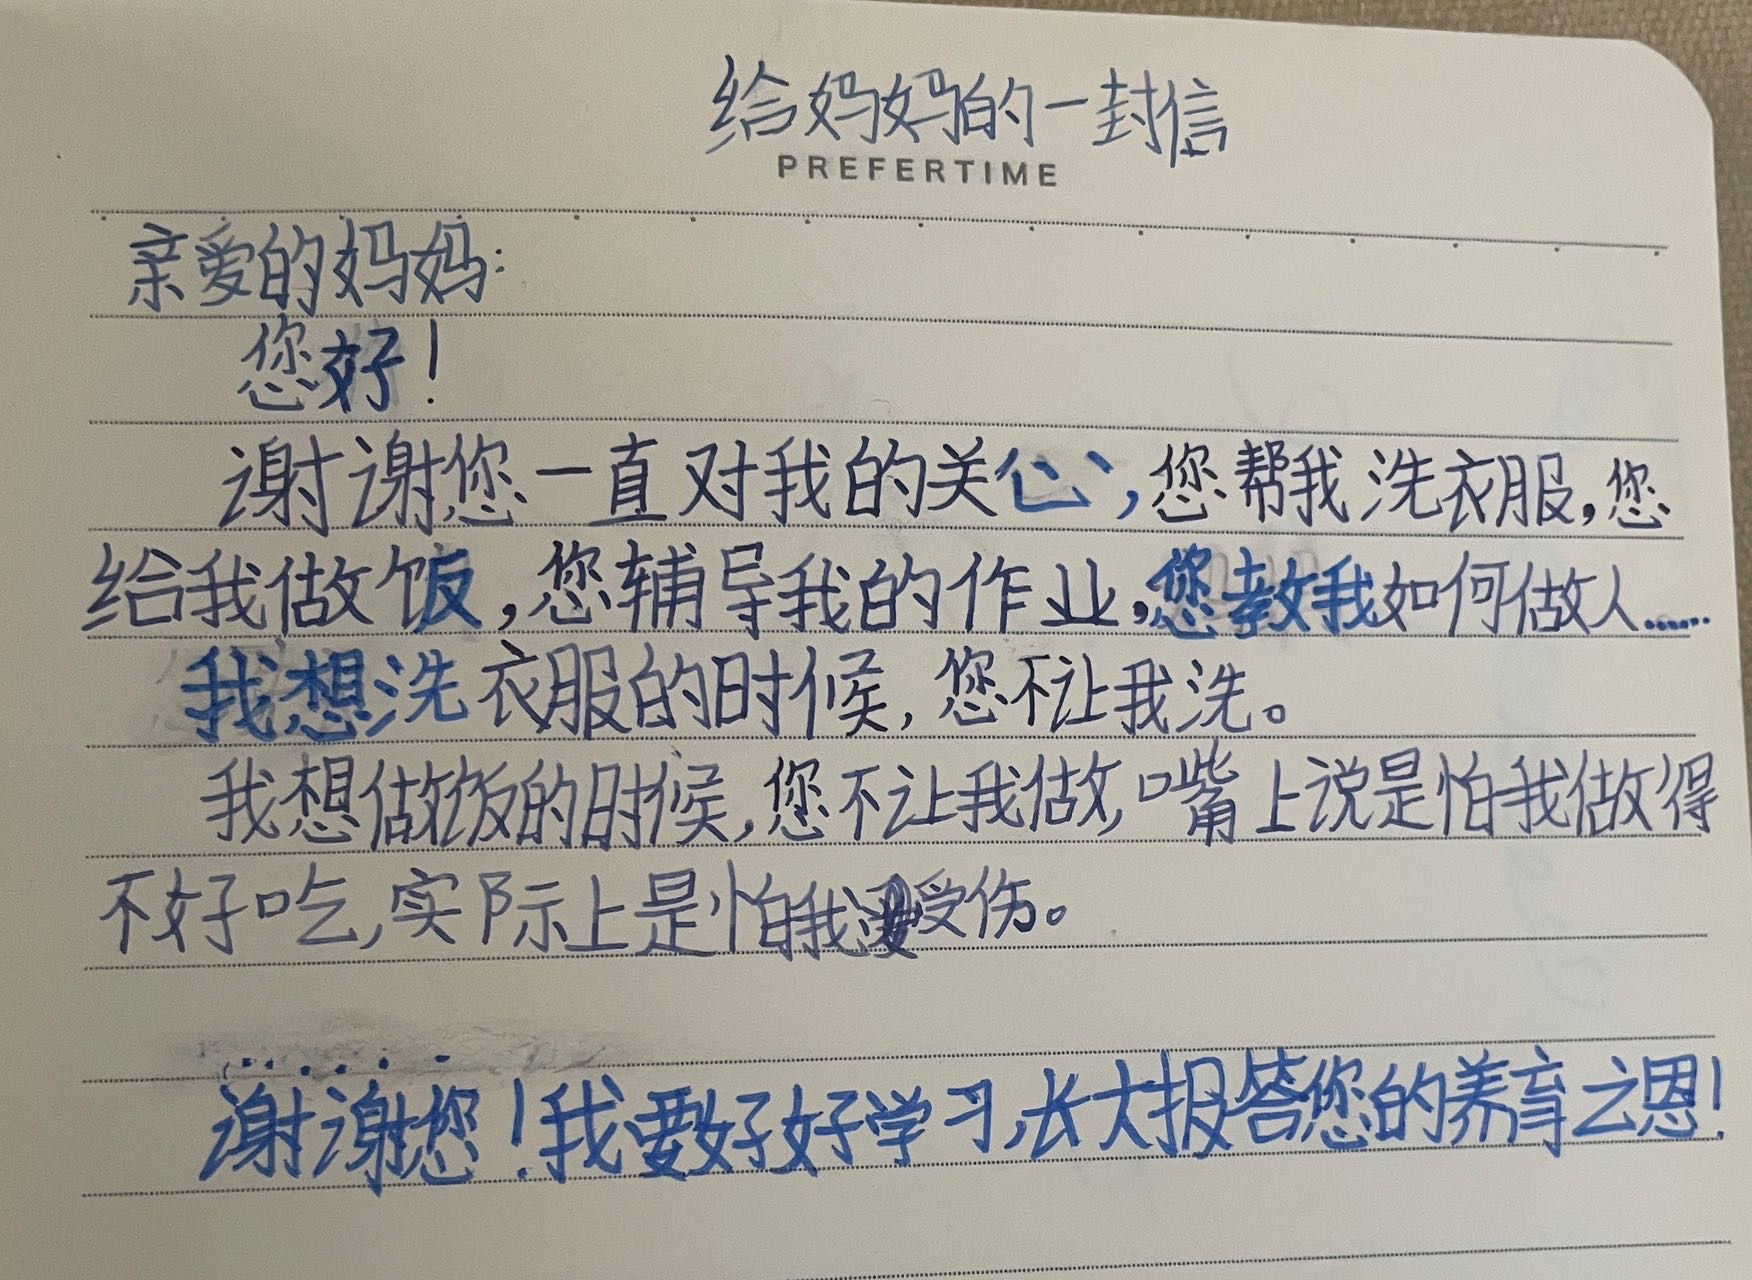 给妈妈的一封信
PREFERTIME
亲爱的妈妈:
您好!
谢谢您一直对我的关心,您帮我洗衣服,您
给我做饭,您辅导我的作业,您教我如何做人……
我想洗衣服的时候,您不让我洗。
我想做饭的时候,您不让我做,嘴上说是怕我做得
不好吃,实际上是怕我受伤。
……
谢谢您!我要好好学习,长大报答您的养育之恩!